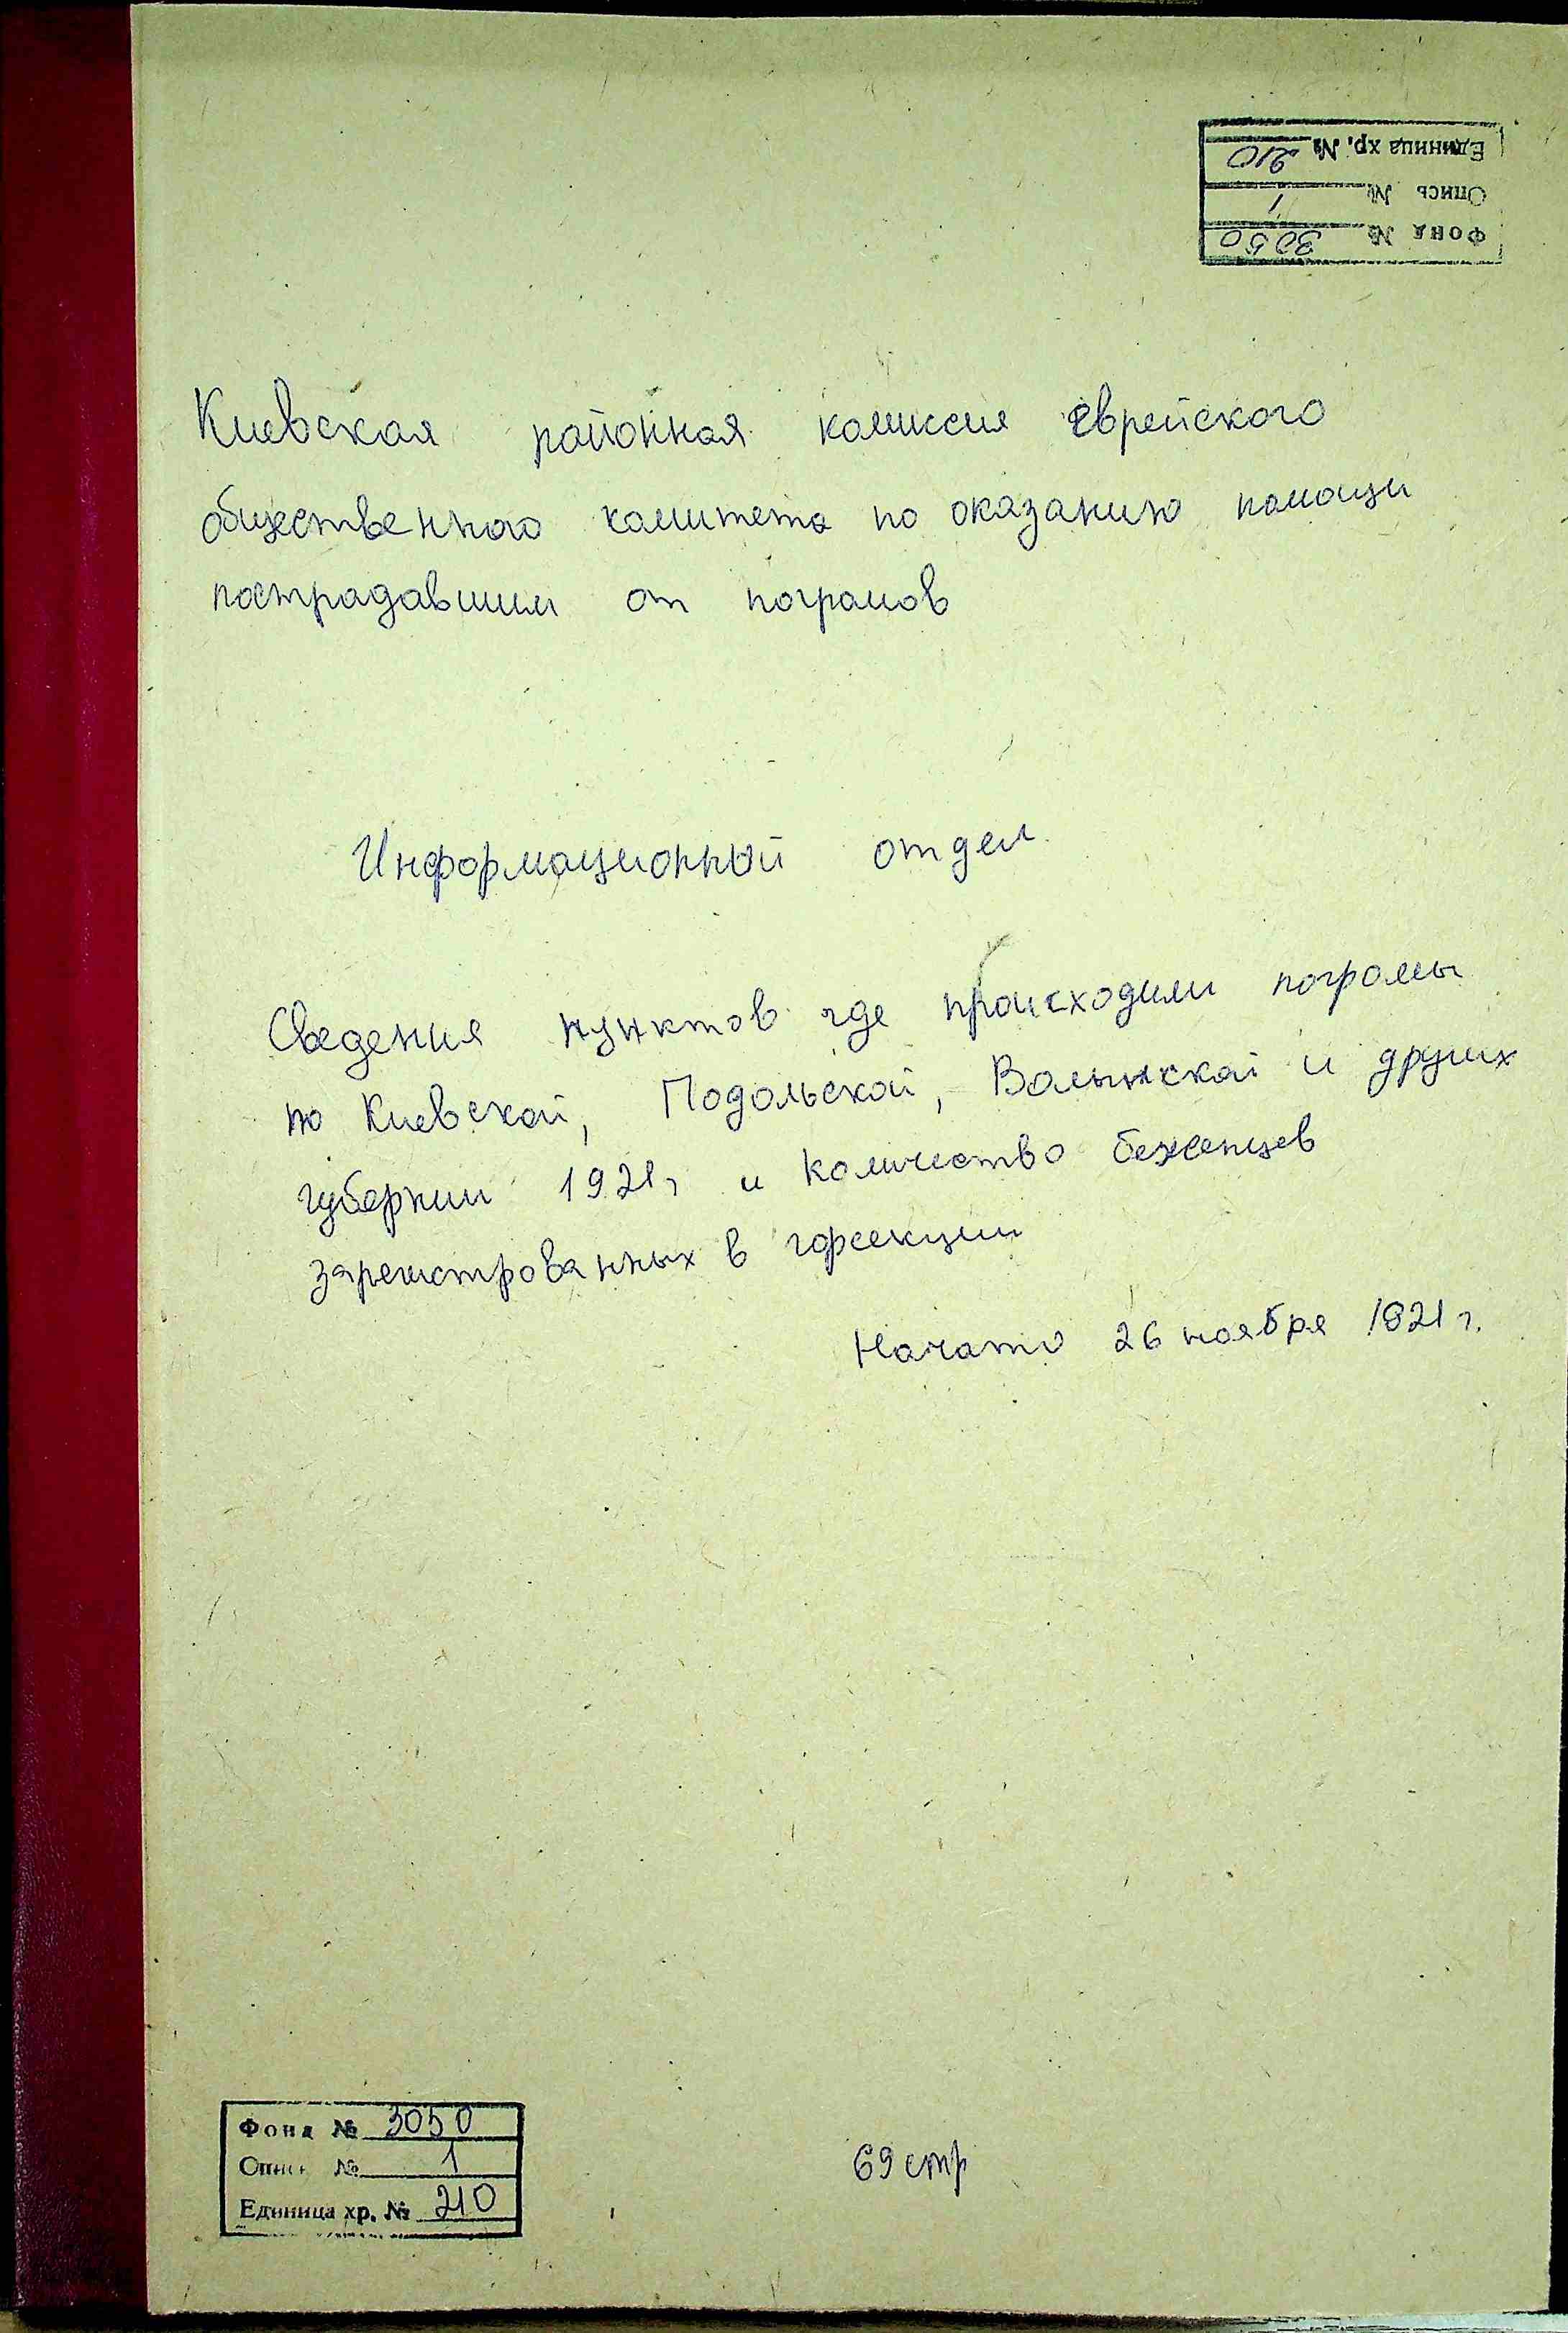 Единица хр. № 210
Опись № 1
Фонд № 3050
Киевская районная комиссия еврейского
общественного комитета по оказанию помощи
пострадавшим от погромов
Информационный отдел
Сведения пунктов где происходили погромы
по Киевской, Подольской, Волынской и других
губернии 1921г и количество беженцев
зарегистрованных в горсекции
Начато 26 ноября 1921 г.
Фонд № 3050
Опись № 1
Единица хр. № 210
69 стр